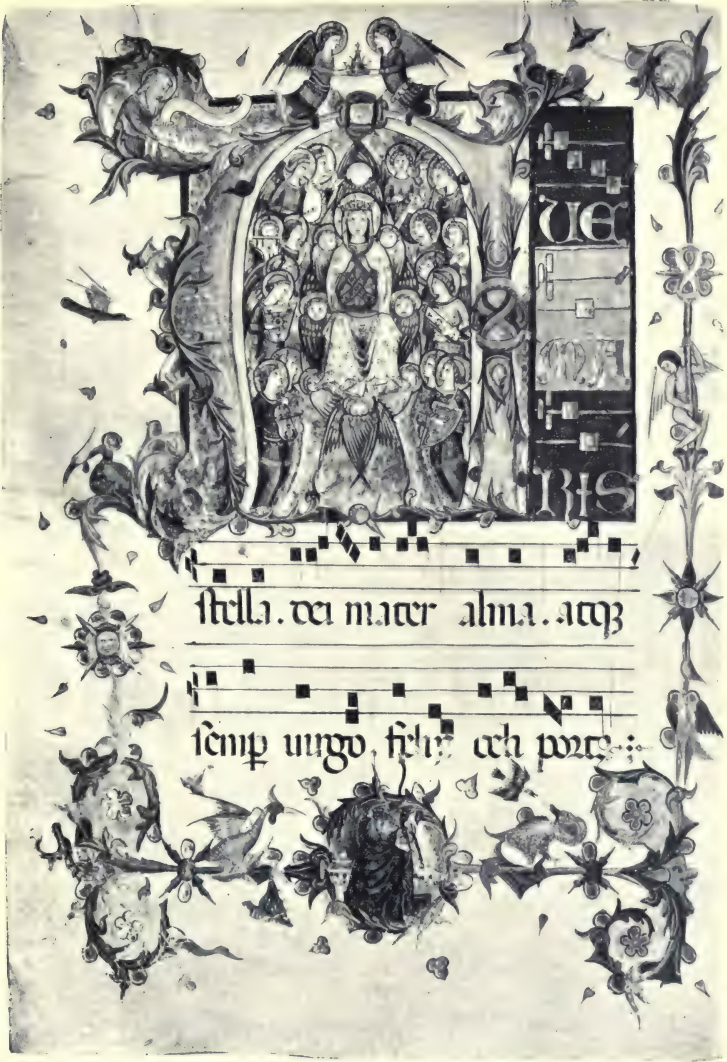 AVE
MA
RIS
stella. dei mater alma. atqȝ
semꝑ uirgo. felix celi porta